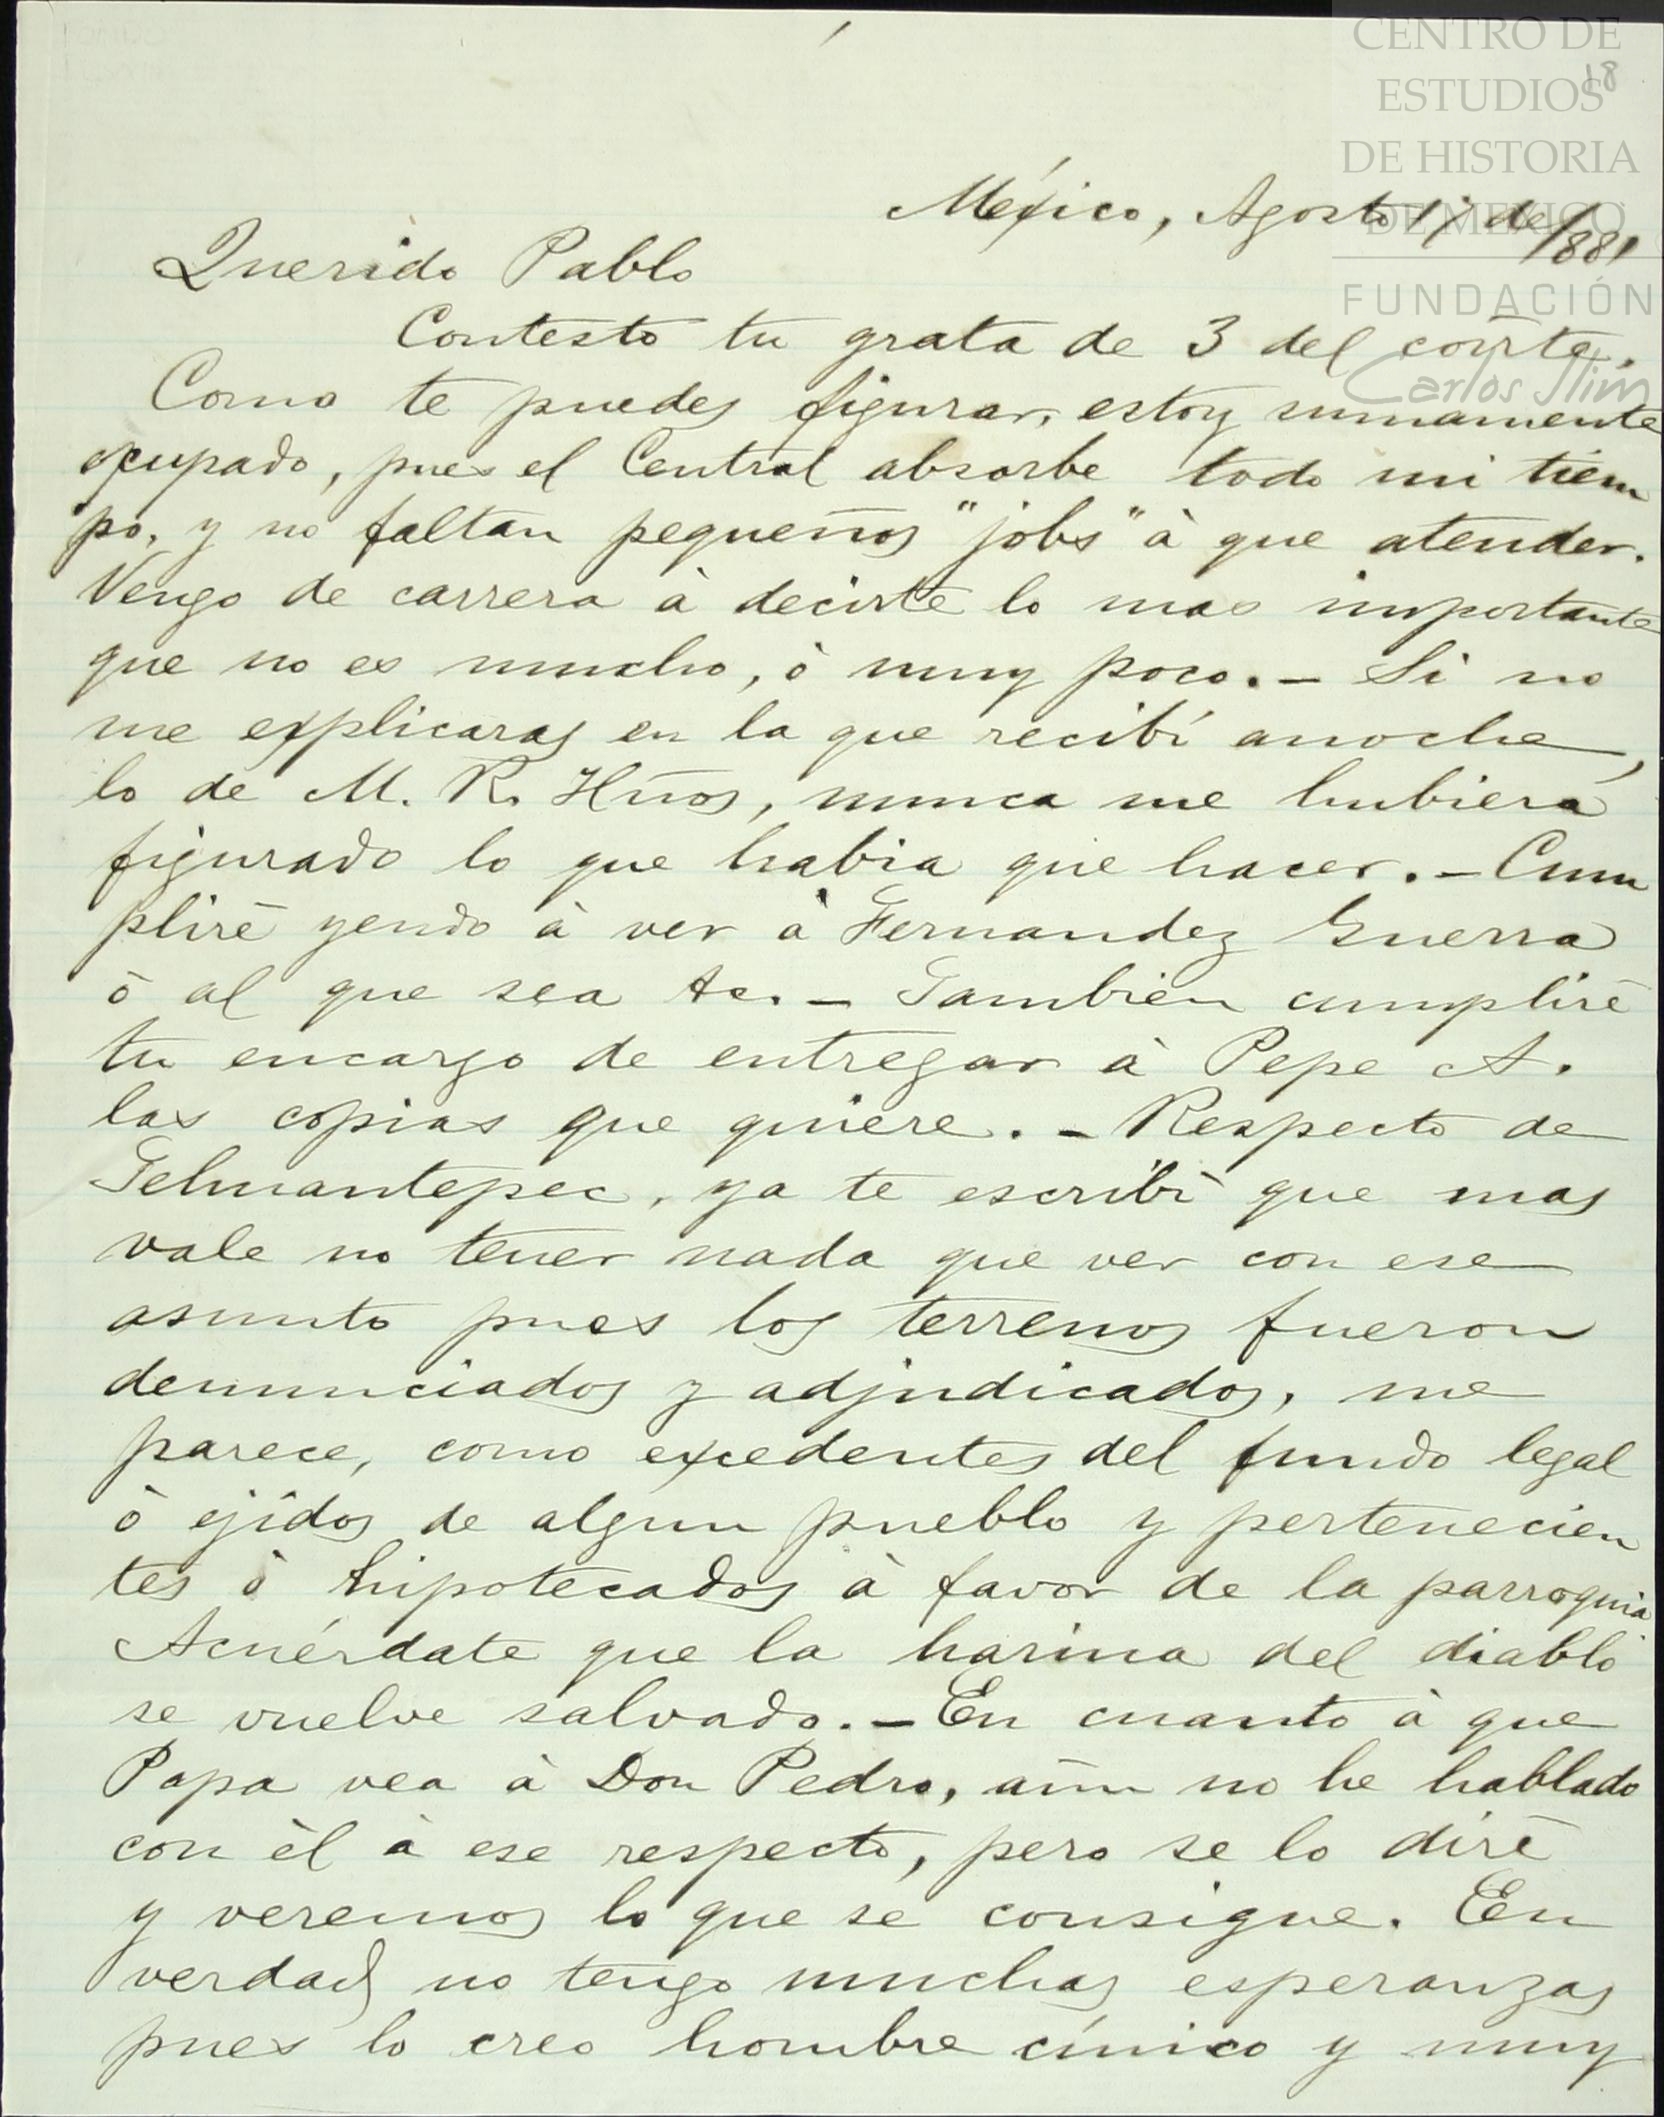 CENTRO DE
ESTUDIOS
DE HISTORIA
DE MEXICO
FUNDACIÓN
Carlos Slim
18
México, Agosto 17 de 1881
Querido Pablo
Contesto tu grata de 3 del corrte.
Como te puedes figurar, estoy sumamente
ocupado, pues el Central absorbe todo mi tiem
po, y no faltan pequeños "jobs" à que atender.
Vengo de carrera à decirte lo mas importante
que no es mucho, ò muy poco. - Si no
me explicaras en la que recibí anoche,
lo de M. R. Hños, nunca me hubiera
figurado lo que habia que hacer. - Cum
pliré yendo à ver à Fernandez Guerra
ò al que sea &c. - Tambien cumpliré
tu encargo de entregar à Pepe A.
las copias que quiere. - Respecto de
Tehuantepec, ya te escribí que mas
vale no tener nada que ver con ese
asunto pues los terrenos fueron
denunciados y adjudicados, me
parece, como excedentes del fundo legal
ò ejidos de algun pueblo y pertenecien
tes ò hipotecados à favor de la parroquia
Acuérdate que la harina del diablo
se vuelve salvado. - En cuanto à que
Papa vea à Don Pedro, aun no he hablado
con èl à ese respecto, pero se lo diré
y veremos lo que se consigue. En
verdad no tengo muchas esperanzas
pues lo creo hombre cínico y muy